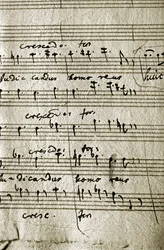 crescendo. for
judicandus homo reus
huic
crescendo for.
cresc: for:
judicandus homo reus
cresc. for